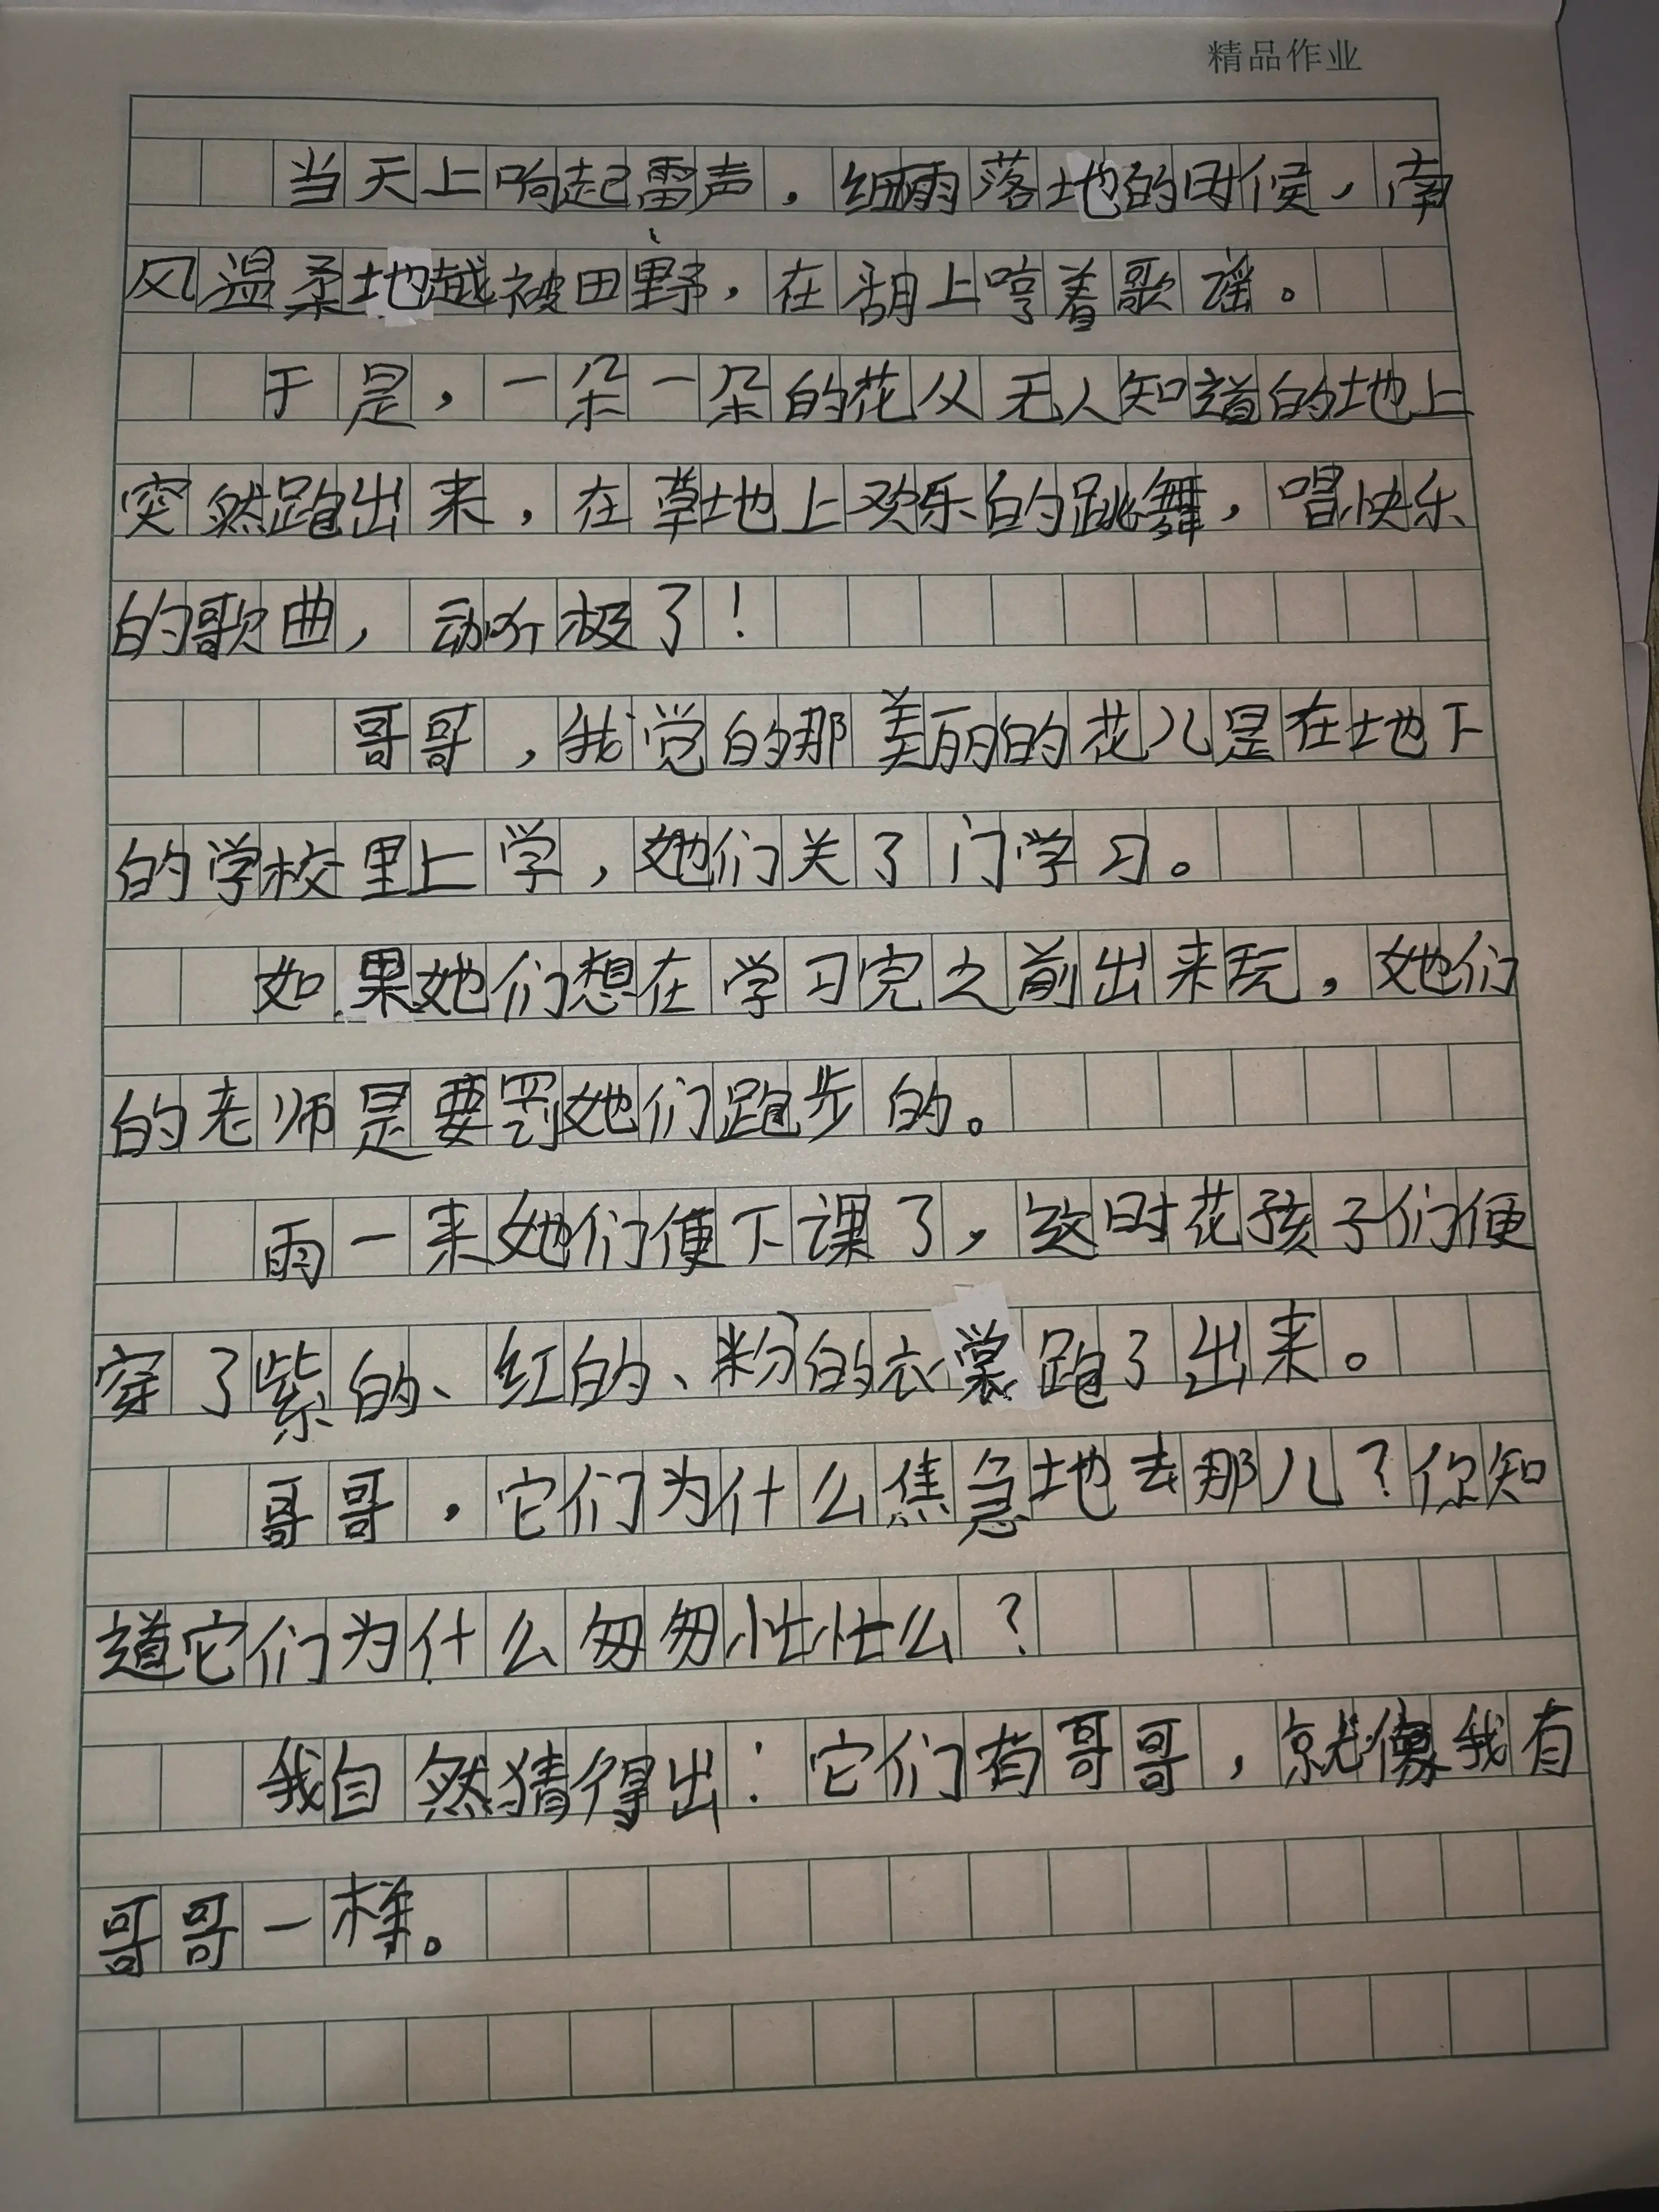 精品作业
当天上响起雷声，细雨落地的时候，南
风温柔地越被田野，在胡上哼着歌谣。
于是，一朵一朵的花从无人知道的地上
突然跑出来，在草地上欢乐的跳舞，唱快乐
的歌曲，动听极了！
哥哥，我觉的那美丽的花儿是在地下
的学校里上学，她们关了门学习。
如果她们想在学习完之前出来玩，她们
的老师是要罚她们跑步的。
雨一来她们便下课了，这时花孩子们便
穿了紫的、红的、粉的衣裳跑了出来。
哥哥，它们为什么焦急地去那儿？你知
道它们为什么匆匆忙忙么？
我自然猜得出：它们有哥哥，就像我有
哥哥一样。